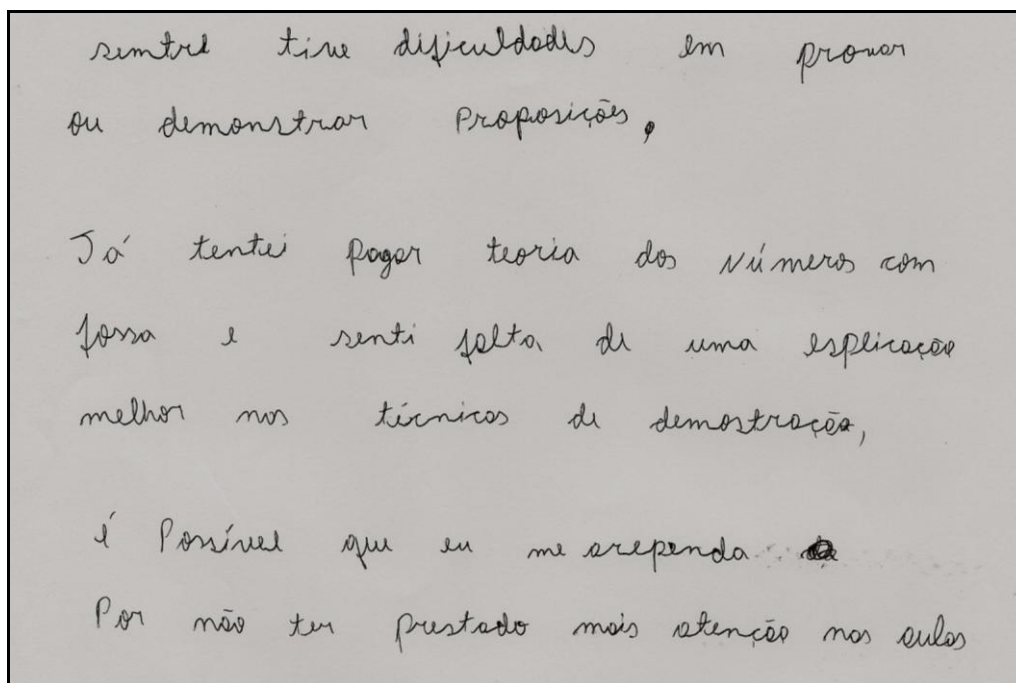 semtre tive dificuldades em provar
ou demonstrar Proposições,
Já tentei pagar teoria dos Números com
fossa e senti falta de uma esplicação
melhor nas técnicas de demostração,
é Possível que eu me arependa
Por não ter prestado mais atenção nas aulas